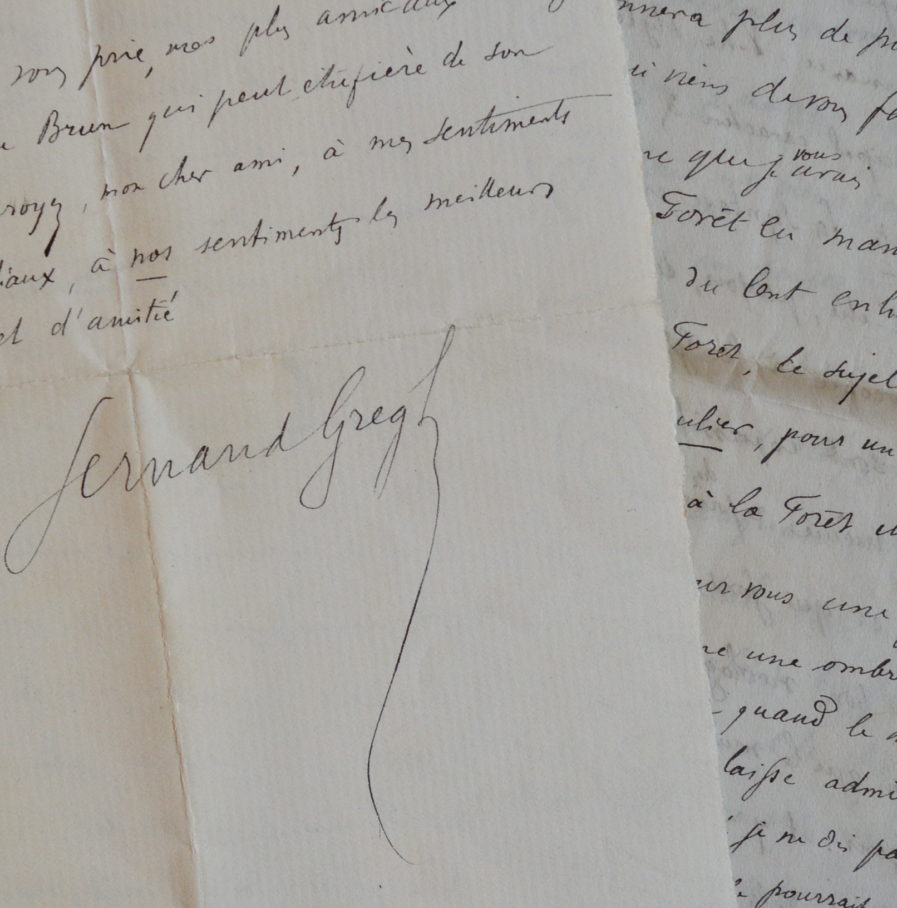 vous prie, mes plus amicaux
Brun qui peut être fière de son
croyez, mon cher ami, à mes sentiments
diaux, à nos sentiments les meilleurs
et d'amitié
Fernand Gregh
nnera plus de
viens devou
ne que je vous avais
Forêt lu
du lent
Forêt, le sujet
ulier, pour un
à la Forêt
ur vous une
ne une ombr
quand le
laisse admi
je ne dis pa
pourrait